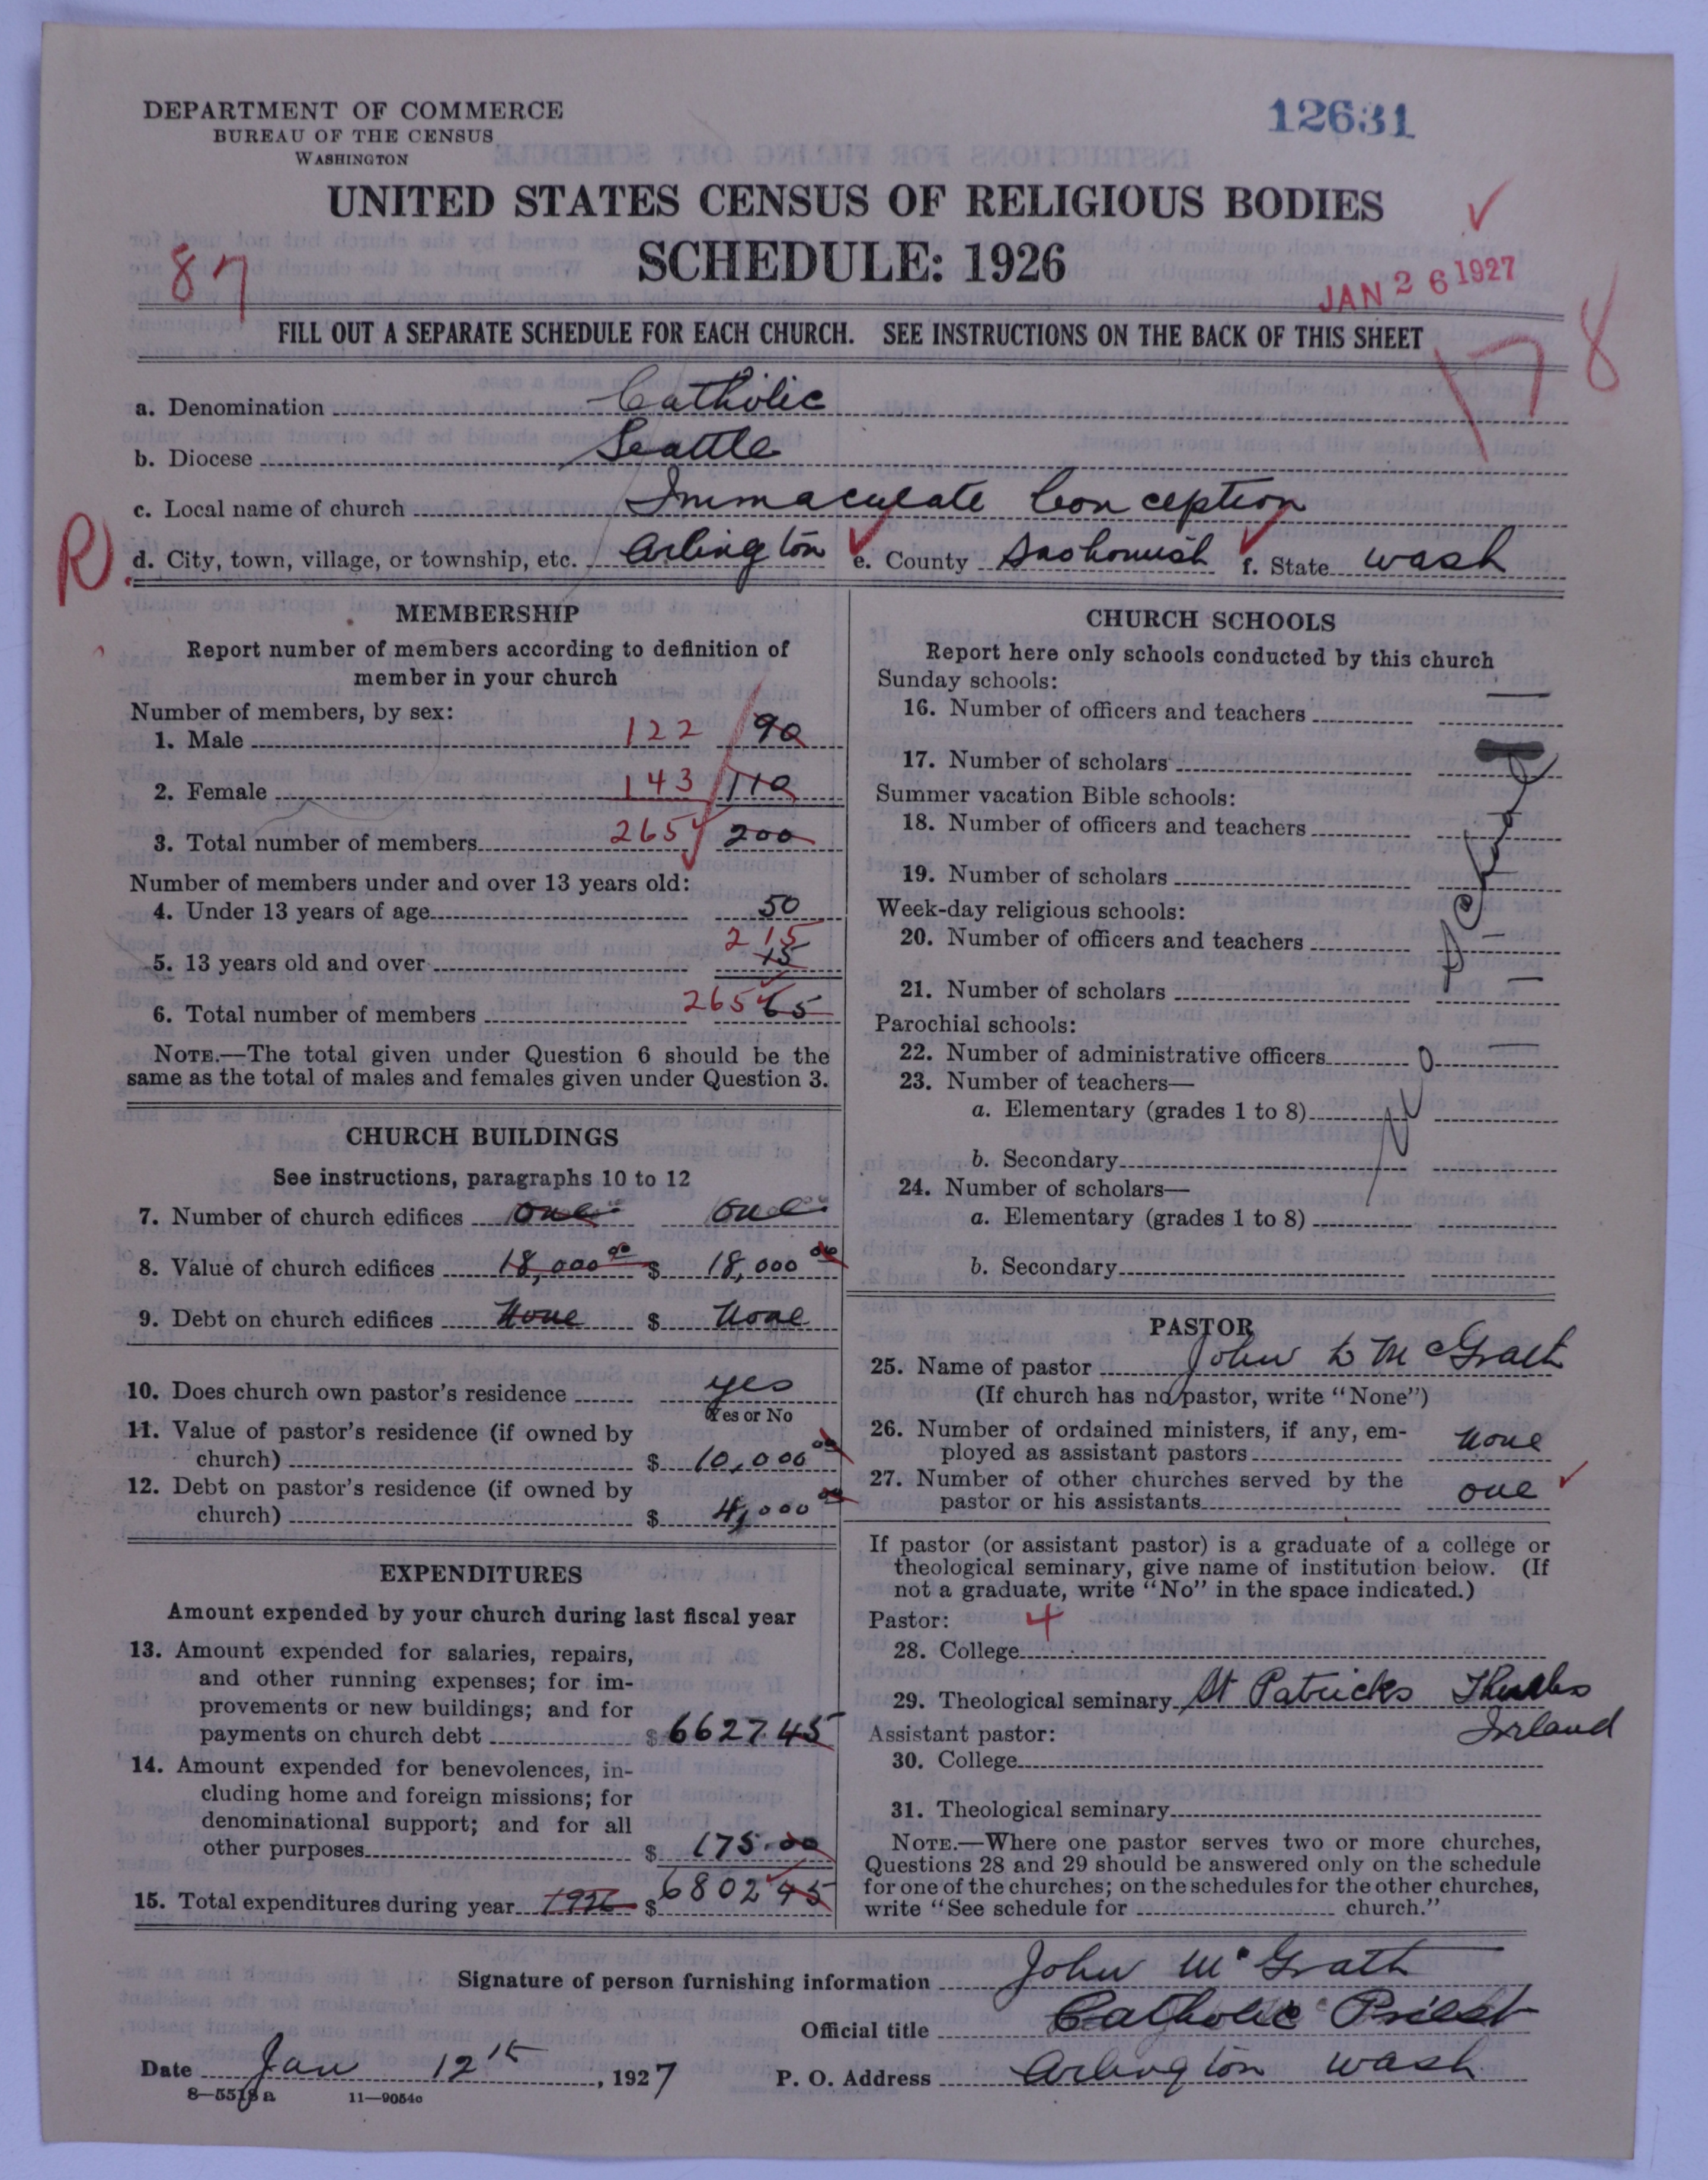 DEPARTMENT OF COMMERCE
BUREAU OF THE CENSUS
WASHINGTON
12631
UNITED STATES CENSUS OF RELIGIOUS BODIES
SCHEDULE: 1926
87
JAN 26 1927
178
FILL OUT A SEPARATE SCHEDULE FOR EACH CHURCH. SEE INSTRUCTIONS ON THE BACK OF THIS SHEET
a. Denomination Catholic
b. Diocese Seattle
c. Local name of church Immaculate Conception
R
d. City, town, village, or township, etc. Arlington e. County Snohomish f. State Wash
MEMBERSHIP
Report number of members according to definition of
member in your church
Number of members, by sex:
1. Male 122 90
2. Female 143 110
3. Total number of members 265 200
Number of members under and over 13 years old:
4. Under 13 years of age 50
215
5. 13 years old and over 15
6. Total number of members 265 65
NOTE.—The total given under Question 6 should be the
same as the total of males and females given under Question 3.
CHURCH BUILDINGS
See instructions, paragraphs 10 to 12
7. Number of church edifices one one
8. Value of church edifices 18,000 00 $ 18,000 00
9. Debt on church edifices None $ None
10. Does church own pastor's residence yes
Yes or No
11. Value of pastor's residence (if owned by
church) $ 10,000 00
12. Debt on pastor's residence (if owned by
church) $ 4,000 00
EXPENDITURES
Amount expended by your church during last fiscal year
13. Amount expended for salaries, repairs,
and other running expenses; for im-
provements or new buildings; and for
payments on church debt $ 6627 45
14. Amount expended for benevolences, in-
cluding home and foreign missions; for
denominational support; and for all
other purposes $ 175.00
15. Total expenditures during year 1926 $ 6802 45
CHURCH SCHOOLS
Report here only schools conducted by this church
Sunday schools:
16. Number of officers and teachers —
17. Number of scholars
Summer vacation Bible schools:
18. Number of officers and teachers
19. Number of scholars
Week-day religious schools:
20. Number of officers and teachers —
21. Number of scholars —
Parochial schools:
22. Number of administrative officers —
23. Number of teachers—
a. Elementary (grades 1 to 8)
b. Secondary
24. Number of scholars—
a. Elementary (grades 1 to 8)
b. Secondary
PASTOR
25. Name of pastor John McGrath
(If church has no pastor, write "None")
26. Number of ordained ministers, if any, em-
ployed as assistant pastors None
27. Number of other churches served by the
pastor or his assistants one
If pastor (or assistant pastor) is a graduate of a college or
theological seminary, give name of institution below. (If
not a graduate, write "No" in the space indicated.)
Pastor: 4
28. College
29. Theological seminary St Patricks Thurles
Irland
Assistant pastor:
30. College
31. Theological seminary
NOTE.—Where one pastor serves two or more churches,
Questions 28 and 29 should be answered only on the schedule
for one of the churches; on the schedules for the other churches,
write "See schedule for church."
Signature of person furnishing information John McGrath
Official title Catholic Priest
Date Jan 12 15, 1927 P. O. Address Arlington Wash
8—5518a 11—9054c